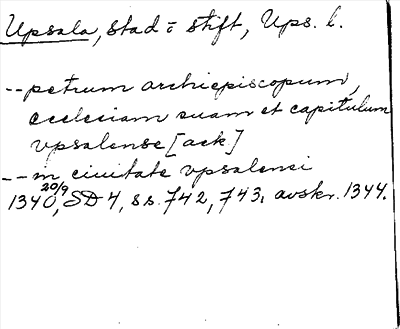 Upsala, stad o stift, Ups. l.
-- petrum archiepiscopum,
ecclesiam suam et capitulum
vpsalense [ack]
-- in ciuitate vpsalensi
1340 20/9, SD 4, ss. 742, 743. avskr. 1344.